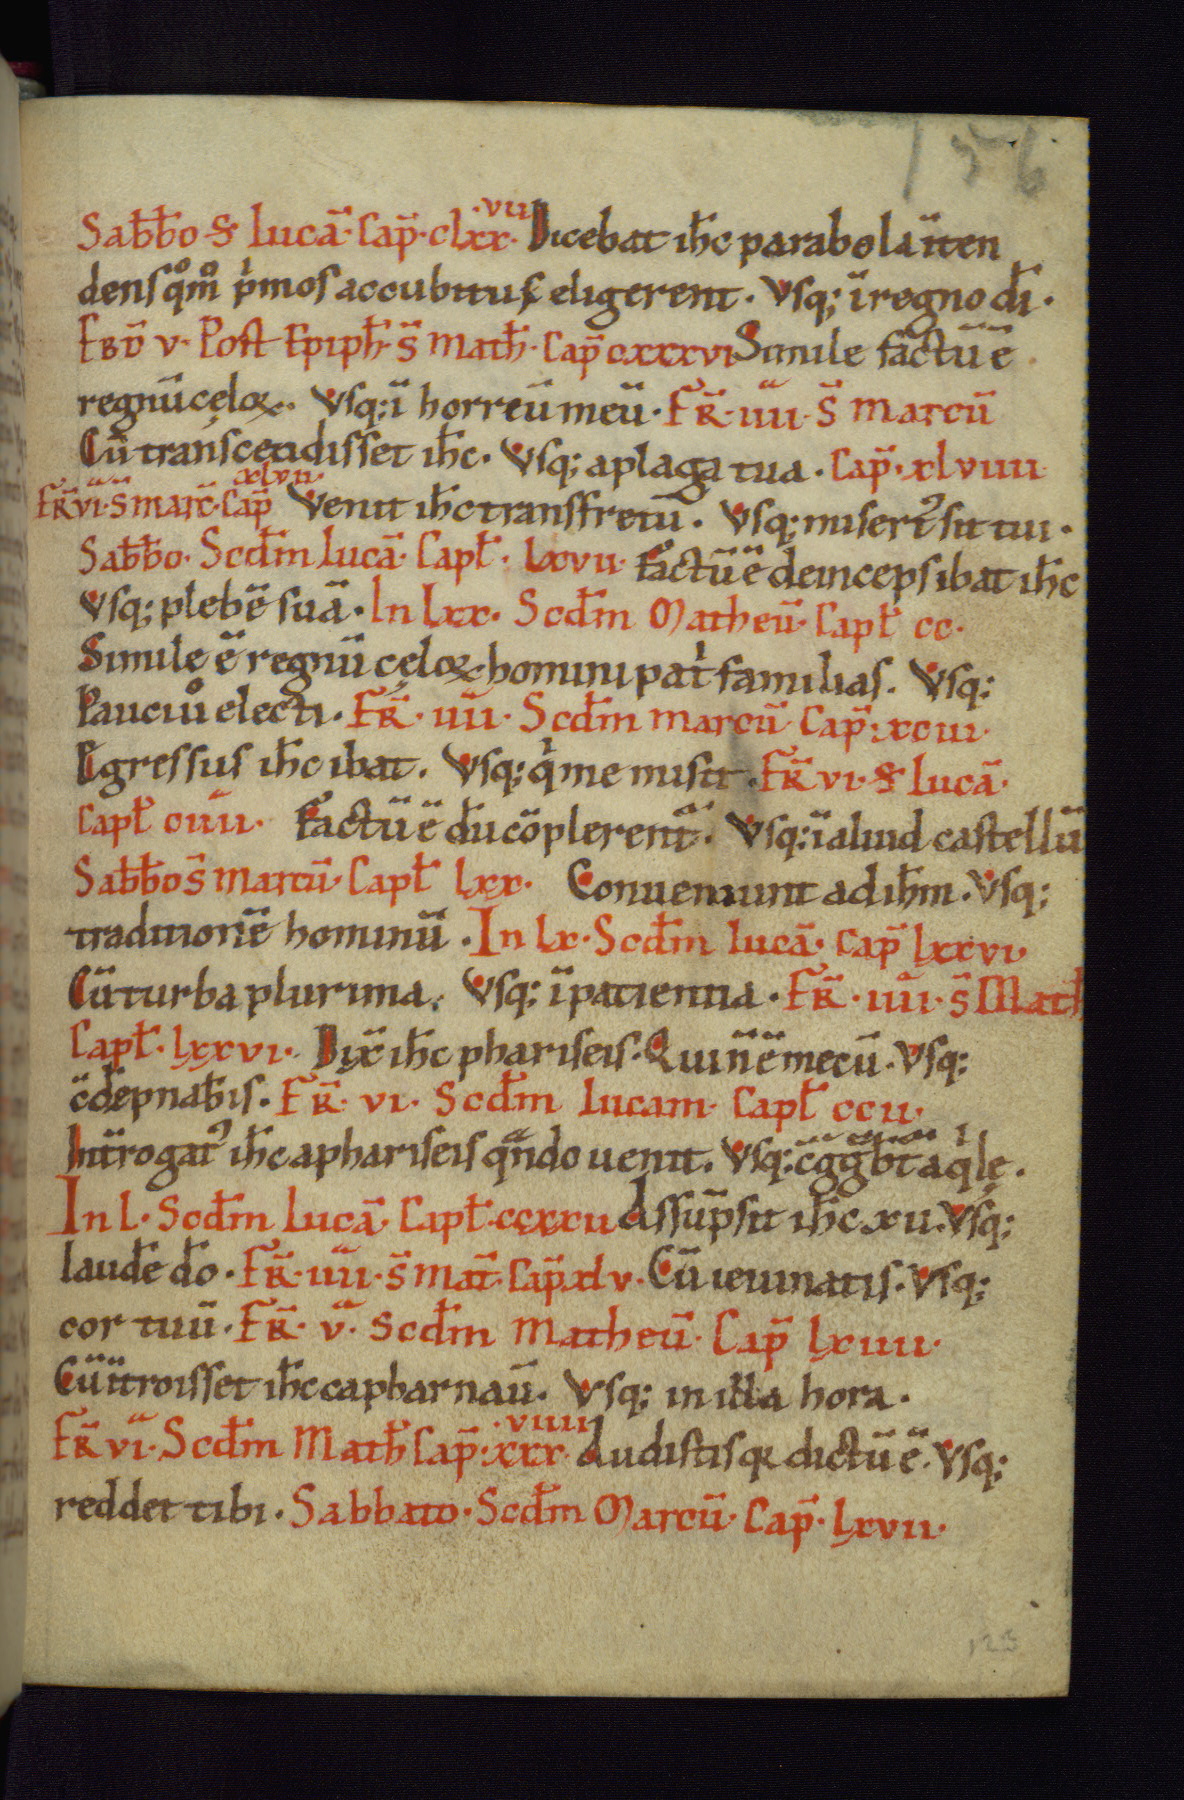 156
Sab̄b̄o · S̄ · lucā · Cap̄ · clxx · vii · Dicebat ih̄c parabola īten
dens qͦmͦ pͥmos accubitus eligerent · Vsq; ī regno d̄i ·
EBD̄ v · Post Epiph̄ · S̄ Math̄ · Cap̄ cxxxvi Simile factū ē
regnū cęloꝝ · Vsq; ī horreū meū · FR̄ · iiii · S̄ Marcū
Cū transcendisset ih̄c · Vsq; a plaga tua · Cap̄ · xlviiii
FR̄ vi · S̄ Marc̄ · Cap̄ xlvii · Venit ih̄c trans fretū · Vsq; misertꝰ sit tui ·
Sab̄b̄o · Scd̄m lucā · Capt̄ · lxvii · Factū ē deinceps ibat ih̄c
Vsq; plebē suā · In lxx · Scd̄m Matheū · Capt̄ cc ·
Simile ē regnū cęloꝝ homini patͥ familias · Vsq;
Pauci uͦ electi · FR̄ · iiii · Scd̄m Marcū · Cap̄ · xciii ·
Egressus ih̄c ibat · Vsq; qͥ me misit · FR̄ vi · S̄ lucā ·
Capt̄ ciiii · Factū ē dū cōplerent̄ · Vsq; ī aliud castellū
Sab̄b̄o S̄ Marcū · Capt̄ lxx · Conueniunt ad ih̄m · Vsq;
traditionē hominū · In lx · Scd̄m lucā · Cap̄ lxxvi ·
Cū turba plurima · Vsq; ī patientia · FR̄ · iiii · S̄ Math̄
Capt̄ · lxxvi · Dix̄ ih̄c phariseis · Qui n̄ ē mecū · Vsq;
c̄dēpnab̄is · FR̄ · vi · Scd̄m lucam · Capt̄ ccii ·
Int̄rogatꝰ ih̄c a phariseis qͣndo uenit · Vsq; c̄ggͣbt̄ aqͥlę ·
In l · Scd̄m lucā · Capt̄ · ccxxii Assūpsit ih̄c xii · Vsq;
laudē d̄o · FR̄ · iiii · S̄ Mat̄ · Cap̄ xlv · Cū ieiunatis · Vsq;
cor tuū · FR̄ · v · Scd̄m Matheū · Cap̄ lxiiii ·
Cū īt̄roisset ih̄c capharnaū · Vsq; in illa hora ·
FR̄ vi · Scd̄m Math̄ Cap̄ · xxx · viiii Audistis qꝛ dictū ē · Vsq;
reddet tibi · Sabbato · Scd̄m Marcū · Cap̄ · lxvii ·
123